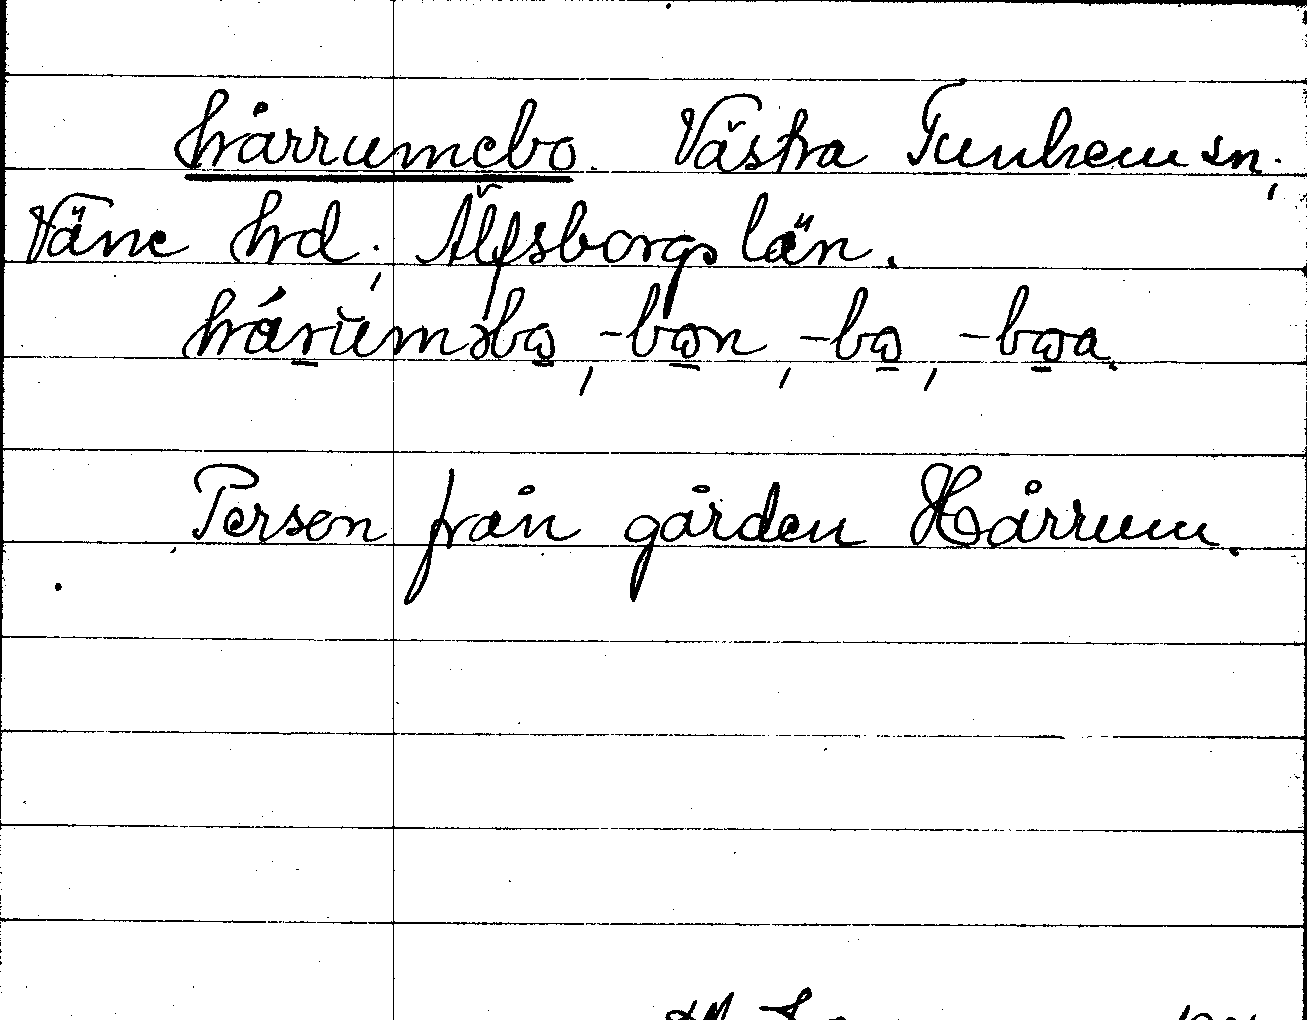 hårrumebo. Västra Tunhem sn;
Väne hd; Älfsborgs län.
hárŭməbo, -bon, -bo, -boa.
Person från gården Hårrum.